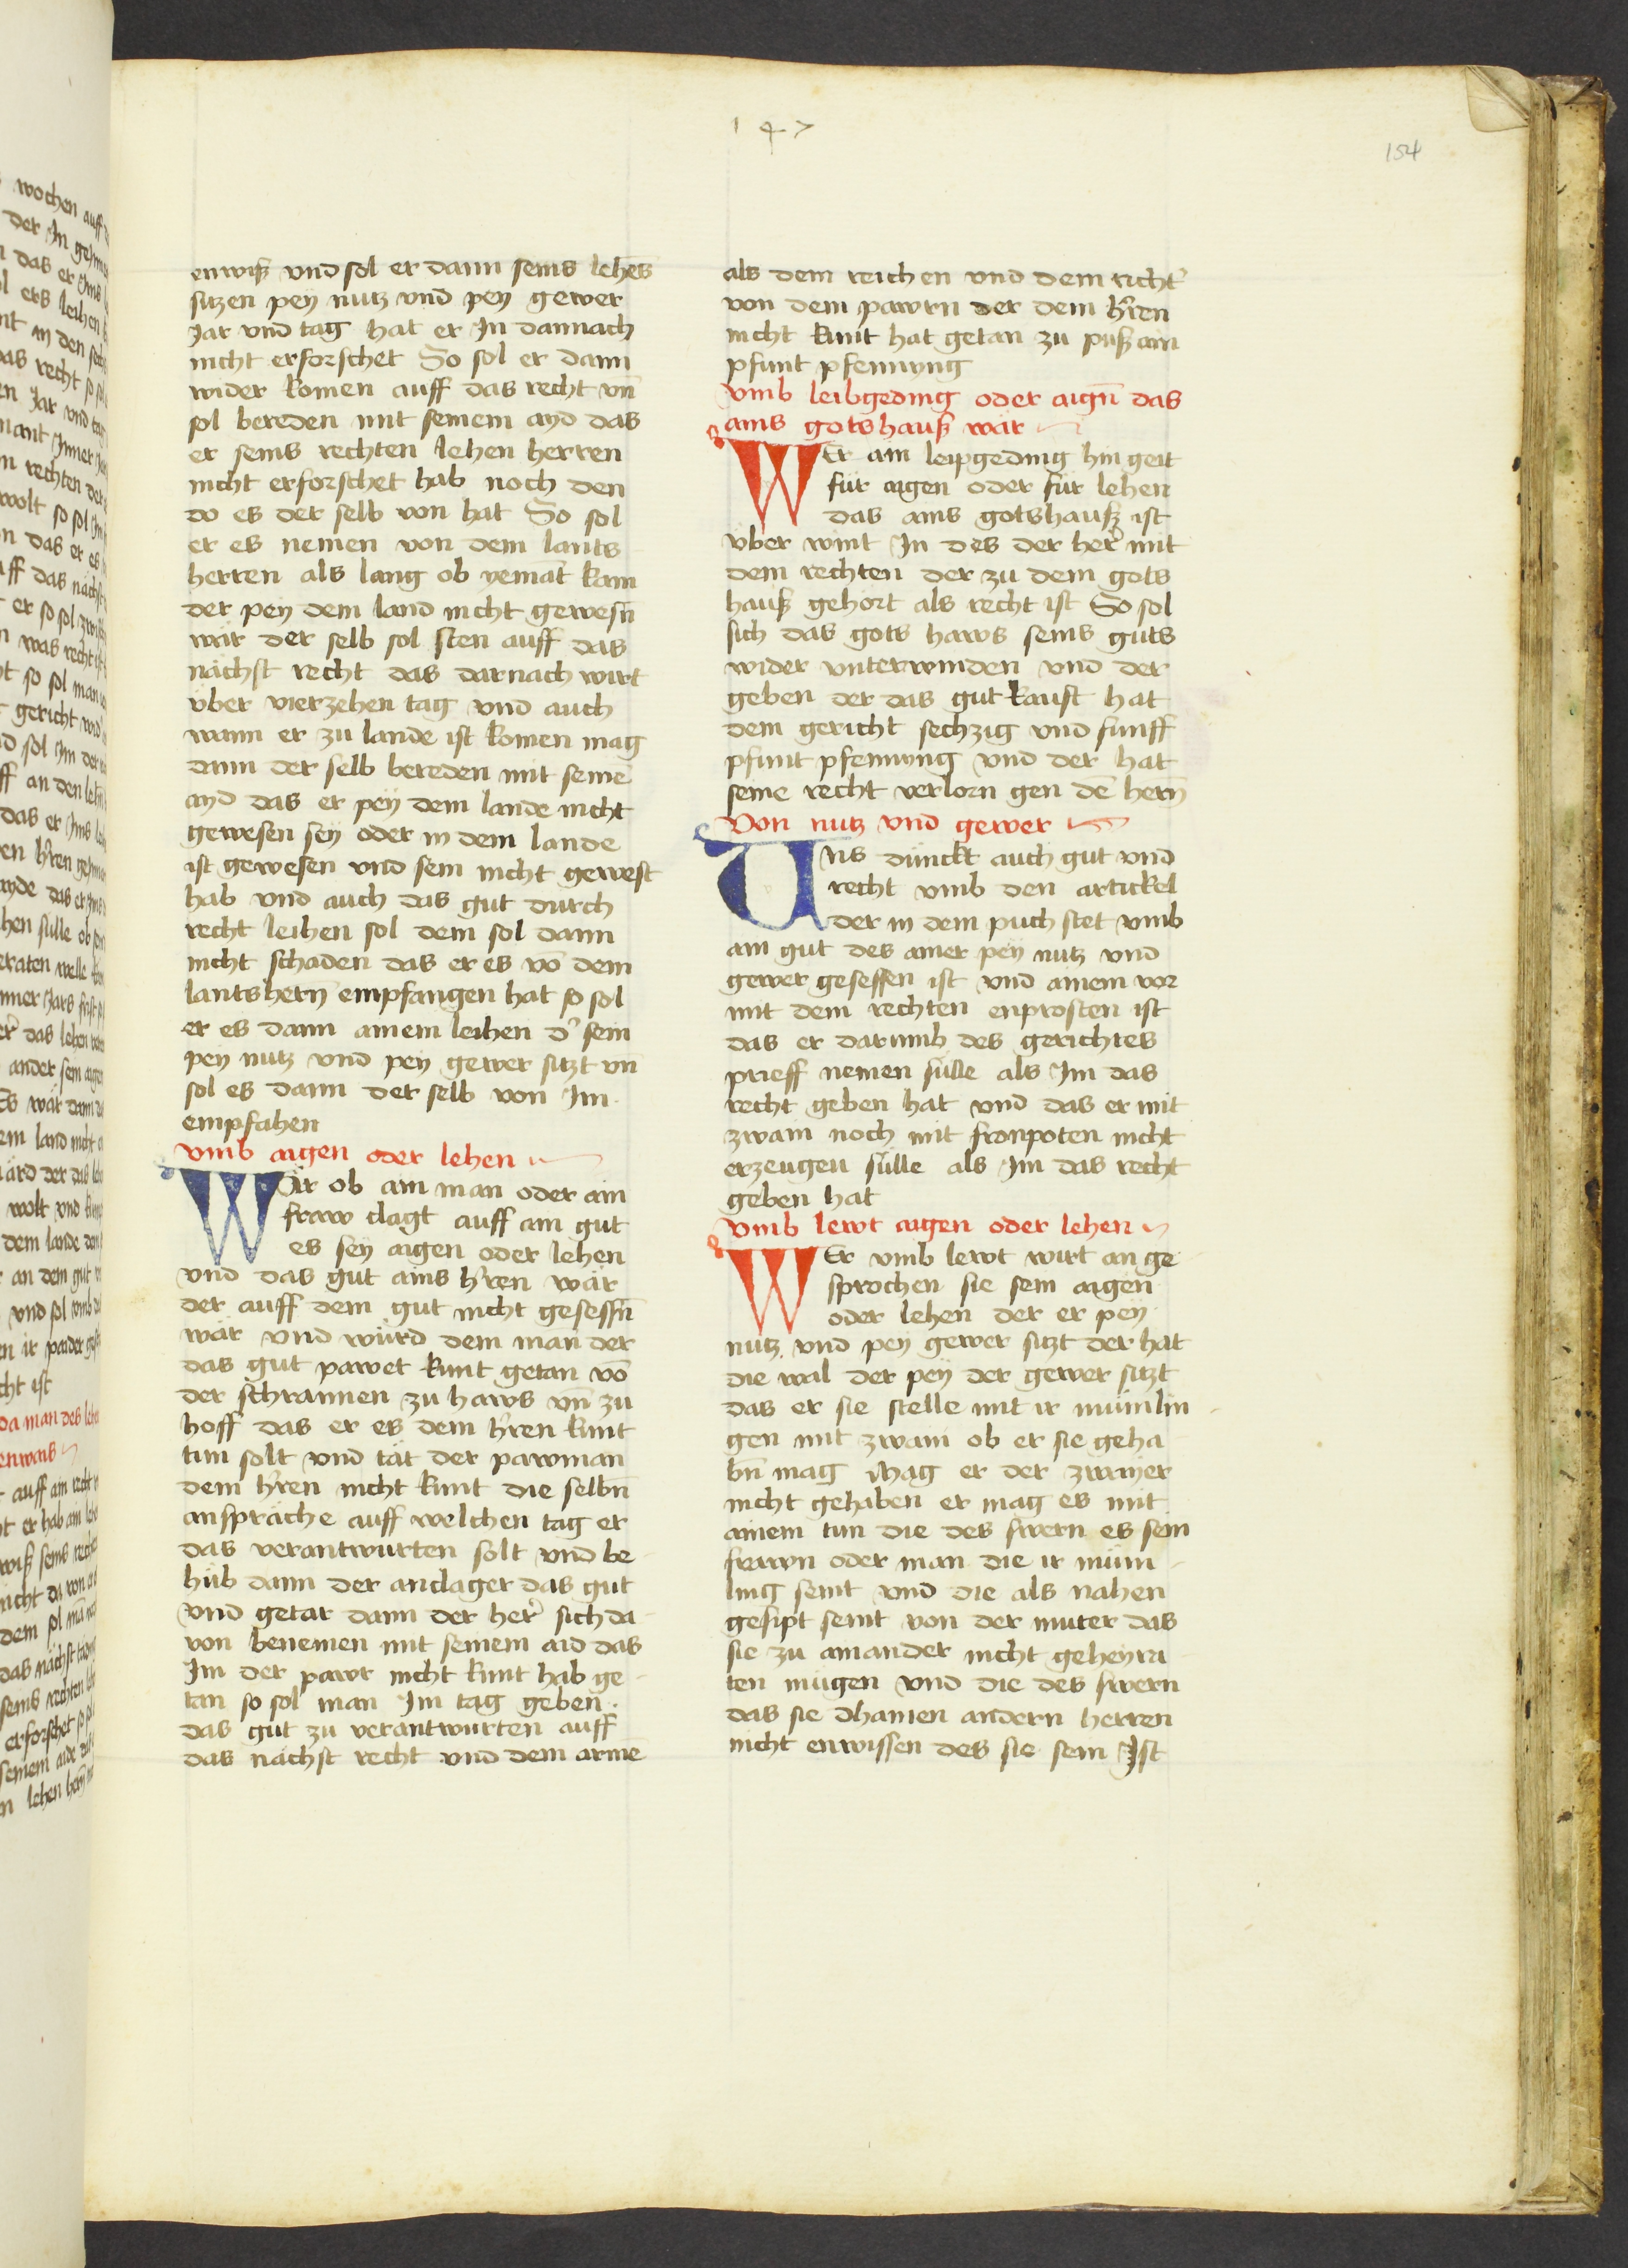 147
154
enwiß vnd sol er dann seins lehēs
sitzen pey nutz vnd pey gewer
Jar vnd tag hat er In dannach
nicht erforschet So sol er dann
wider komen auff das recht vn̄
sol bereden mit seinem ayd das
er seins rechten lehen herren
nicht erforschet hab noch den
do es der selb von hat So sol
er es nemen von dem lants
herren als lang ob yemāt kam
der pey dem land nicht gewesn̄
wär der selb sol sten auff das
nächst recht das darnach wirt
vber vierzehen tag vnd auch
wann er zu lande ist komen mag
dann der selb bereden mit seinē
ayd das er pey dem lande nicht
gewesen sey oder in dem lande
ist gewesen vnd sein nicht gewest
hab vnd auch das gut durch
recht leihen sol dem sol dann
nicht schaden das er es vō dem
lantshern̄ empfangen hat so sol
er es dann ainem leihen d' sein
pey nutz vnd pey gewer sitzt vn̄
sol es dann der selb von Im
empfahen
vmb aigen oder lehen
Wär ob ain man oder ain
fraw clagt auff ain gut
es sey aigen oder lehen
vnd das gut ains h'ren wär
der auff dem gut nicht gesessn̄
wär vnd würd dem man der
das gut pawet kunt getan vō
der schrannen zu haws vn̄ zu
hoff das er es dem h'ren kunt
tun solt vnd tät der pawman
dem h'ren nicht kunt die selbn̄
anspräche auff welchen tag er
das verantwurten solt vnd be
hüb dann der anclager das gut
vnd getar dann der her' sich da
von benemen mit seinem aid das
Im der pawr nicht kunt hab ge
tan so sol man Im tag geben
das gut zu verantwurten auff
das nächst recht vnd dem armē
als dem reichen vnd dem richt'
von dem pawrn der dem h'ren
nicht kunt hat getan zu puß ain
pfunt pfennyng
vmb leibgeding oder aign̄ das
ains gotshauß wär
WEr ain leipgeding hin geit
für aigen oder für lehen
das ains gotshauß ist
vber wint In des der her' mit
dem rechten der zu dem gots
hauß gehort als recht ist So sol
sich das gots haws seins guts
wider vnterwinden vnd der
geben der das gut kauft hat
dem gericht sechzig vnd funff
pfunt pfennyng vnd der hat
seine recht verlorn gen dē hern̄
Von nutz vnd gewer
Uns dünckt auch gut vnd
recht vmb den artickel
der in dem puch stet vmb
ain gut des ainer pey nutz vnd
gewer gesessen ist vnd ainem vor
mit dem rechten enprosten ist
das er darumb des gerichtes
prieff nemen sulle als Im das
recht geben hat vnd das er mit
zwain noch mit fronpoten nicht
erzeugen sülle als Im das recht
geben hat
vmb lewt aigen oder lehen
WEr vmb lewt wirt an ge
sprochen sie sein aigen
oder lehen der er pey
nutz vnd pey gewer sitzt der hat
die wal der pey der gewer sitzt
das er sie stelle mit ir mümlin
gen mit zwain ob er sie geha
bn̄ mag Mag er der zwayer
nicht gehaben er mag es mit
ainem tun die des swern es sein
frawn oder man die ir müm
ling seint vnd die als nahen
gesipt seint von der muter das
sie zu ainander nicht geheyra
ten mügen vnd die des swern
das sie dhainen andern herren
nicht enwissen des sie sein Ist